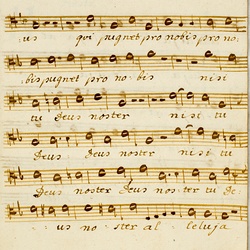 us qui pugnet pro nobis pro no
bis pugnet pro no bis nisi
tu Deus noster nisi tu
Deus Deus noster nisi tu
Deus noster Deus noster tu De
us no ster al leluja